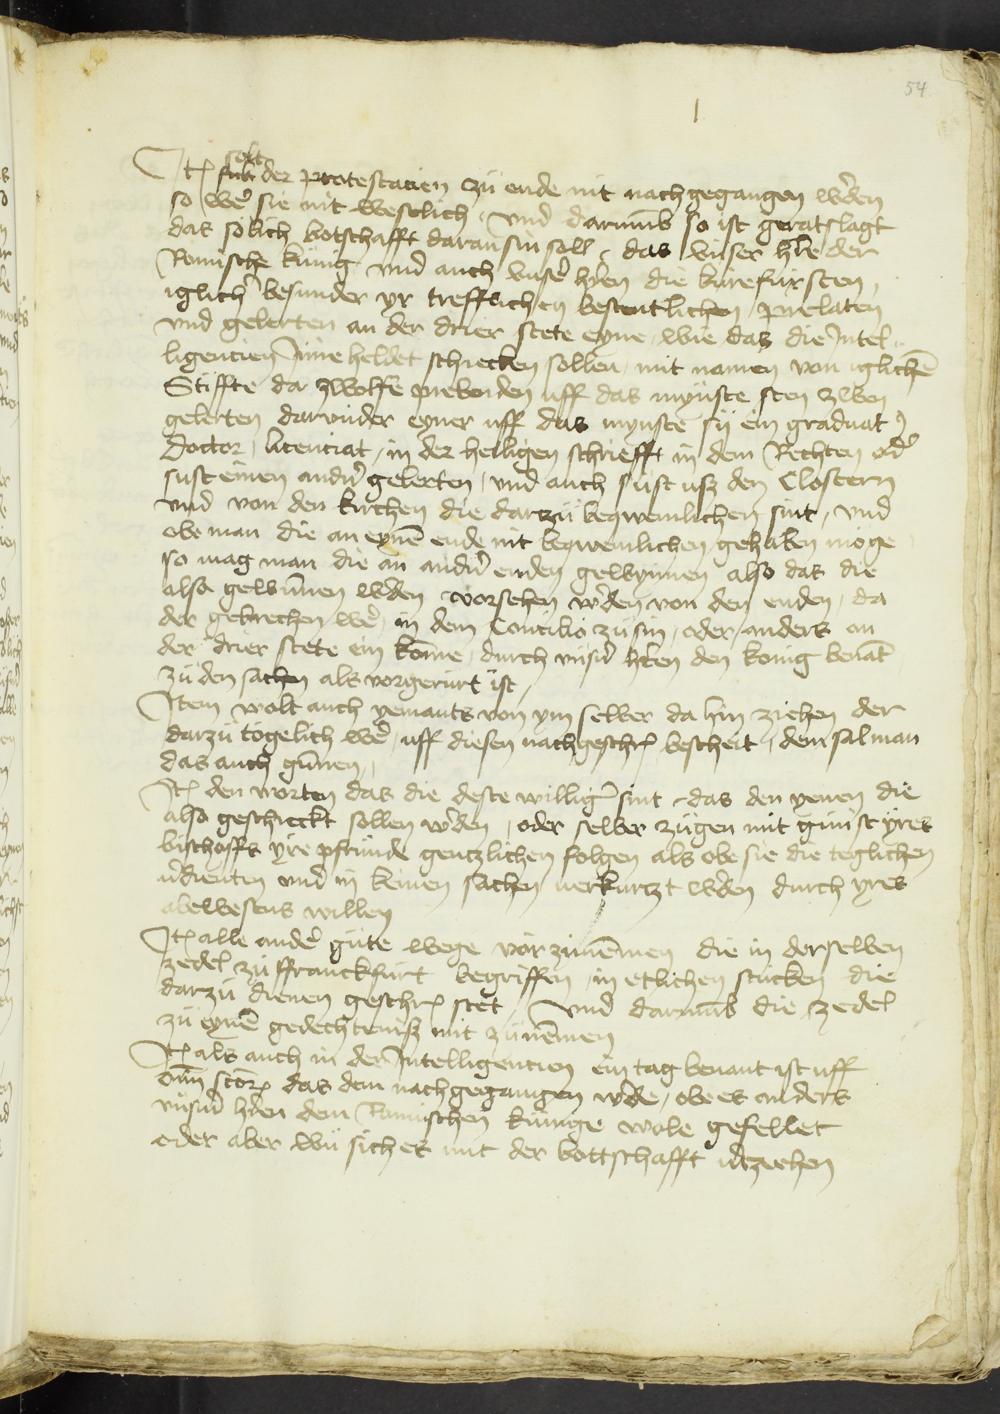 54
I
solt
Itē sulde der protestacien zü ende nit nachgegangen wˀden
so weˀ sie nit westlich, vnd darumb so ist geratslagt
das solich botschafft daran sin soll, das vnser hˀre der
Romische kunig vnd auch vnseˀ hˀren die kurefursten,
iglichˀ besunder yr trefflichen bestentlichen prelaten
vnd gelerten an der drier stete eyne, wie das die Intel¬
ligencien Inne heldet schicken sollen, mit namen von iglichē
Stiffte da zwolfe prebenden uff das mynste sten zwen
gelerten darunder eyner uff das mynste sÿ ein graduatˀ
doctor, licenciat, in der heiligen schriefft in dem Rechten odˀ
sust einen andˀn gelerten, vnd auch sust uß den Clostern
vnd von den kirchen die darzü beqwemlichen sint, vnd
obe man die an eynē ende nit beqwemlichen gehaben moge
so mag man die an andˀn enden gewynnen also das die
also gewunnen wˀden vorsehen wˀden von den enden, da
der gebrechen weˀ, in dem Concilio zü sin, oder anders an
der drier stete ein kome, durch vnsˀn hˀren den konig benāt
zü den sachen als vorgerurt ist,
Item wolt auch yemants von ym selber da hin ziehen der
darzü togelich weˀ, uff diesen nachgeschrˀ bescheit, dem sal man
das auch gunnen,
Itē den worten das die deste willigˀ sint, das den yenen die
also geschickt sollen wˀden, oder selber zugen mit gunst yres
bischoffs yre pfrunde gentzlichen folgen als obe sie die teglichen
vˀdienten vnd in keinen sachen verkurtzt wˀden durch yres
abewesens willen
Itē alle andeˀ gute wege vorzunēmen die in derselben
zedel zü ffranckfurt begriffen in etlichen stucken die
darzü dienen geschrˀ stet, vnd darumb die zedel
zü eynē gedechteniß mit zunēmen
Itē als auch in der Intelligencien ein tag benant ist uff
das dem nachgegangen wˀde, obe es anders
vnsˀm hˀren dem Romischen kunige wole gefellet
oder aber wü sich es mit der bottschafft vˀzeehen